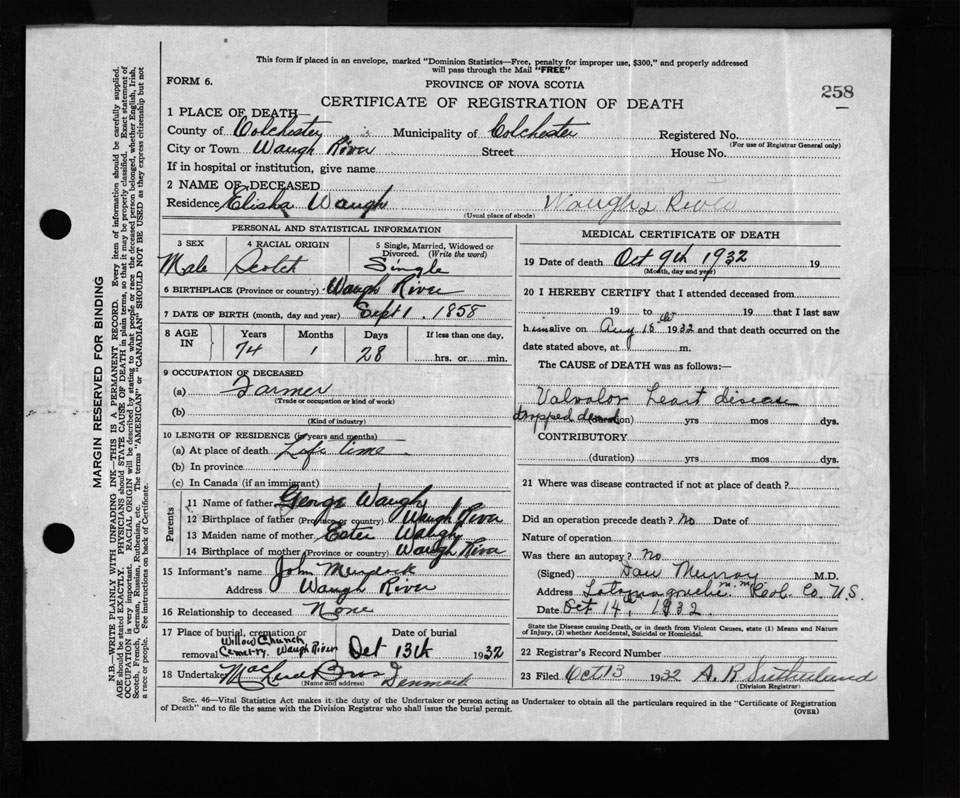 This form if placed in an envelope, marked "Dominion Statistics—Free, penalty for improper use, $300," and properly addressed
will pass through the Mail "FREE"
FORM 6.
PROVINCE OF NOVA SCOTIA
258
CERTIFICATE OF REGISTRATION OF DEATH
1 PLACE OF DEATH
County of Colchester Municipality of Colchester Registered No.
(For use of Registrar General only)
City or Town Waugh River Street House No.
If in hospital or institution, give name
2 NAME OF DECEASED
Residence Elisha Waugh Waughs River
(Usual place of abode)
PERSONAL AND STATISTICAL INFORMATION
3 SEX 4 RACIAL ORIGIN 5 Single, Married, Widowed or
Divorced. (Write the word)
Male Scotch Single
6 BIRTHPLACE (Province or country) Waugh River
7 DATE OF BIRTH (month, day and year) Sept 1. 1858
8 AGE IN Years Months Days If less than one day,
74 1 28 hrs. or min.
9 OCCUPATION OF DECEASED
(a) Farmer
(Trade or occupation or kind of work)
(b)
(Kind of industry)
10 LENGTH OF RESIDENCE (in years and months)
(a) At place of death Life time
(b) In province
(c) In Canada (if an immigrant)
Parents
11 Name of father George Waugh
12 Birthplace of father (Province or country) Waugh River
13 Maiden name of mother Ester Waugh
14 Birthplace of mother (Province or country) Waugh River
15 Informant's name John Murdock
Address Waugh River
16 Relationship to deceased None
17 Place of burial, cremation or removal Date of burial
Willow Church
Cemetry. Waugh River Oct 13th 1932
18 Undertaker Bros Denmark
(Name and address)
MEDICAL CERTIFICATE OF DEATH
19 Date of death Oct 9th 1932 19
(Month, day and year)
20 I HEREBY CERTIFY that I attended deceased from
19 to 19 that I last saw
him alive on Aug 18th 1932 and that death occurred on the
date stated above, at m.
The CAUSE of DEATH was as follows:
Valvolor Heart disease
dropped dead (duration) yrs mos dys.
CONTRIBUTORY
(duration) yrs mos dys.
21 Where was disease contracted if not at place of death?
Did an operation precede death? No Date of
Nature of operation
Was there an autopsy? No
(Signed) Dan Murray M.D.
Address Tatamagouche Co. N.S.
Date Oct 14th 1932
State the Disease causing Death, or in death from Violent Causes, state (1) Means and Nature
of Injury, (2) whether Accidental, Suicidal or Homicidal.
22 Registrar's Record Number
23 Filed Oct 13 1932 A. R Sutherland
(Division Registrar)
Sec. 46—Vital Statistics Act makes it the duty of the Undertaker or person acting as Undertaker to obtain all the particulars required in the "Certificate of Registration
of Death" and to file the same with the Division Registrar who shall issue the burial permit.
(OVER)
MARGIN RESERVED FOR BINDING
N.B.—WRITE PLAINLY WITH UNFADING INK—THIS IS A PERMANENT RECORD. Every item of information should be carefully supplied.
AGE should be stated EXACTLY. PHYSICIANS should STATE CAUSE OF DEATH in plain terms, so that it may be properly classified. Exact statement of
OCCUPATION is very important. RACIAL ORIGIN will be described by stating to what people or race the deceased person belonged, whether English, Irish,
Scotch, French, German, Russian, Ruthenian, etc. The terms "AMERICAN" or "CANADIAN" SHOULD NOT BE USED as they express citizenship but not
a race or people. Fee instructions on back of Certificate.